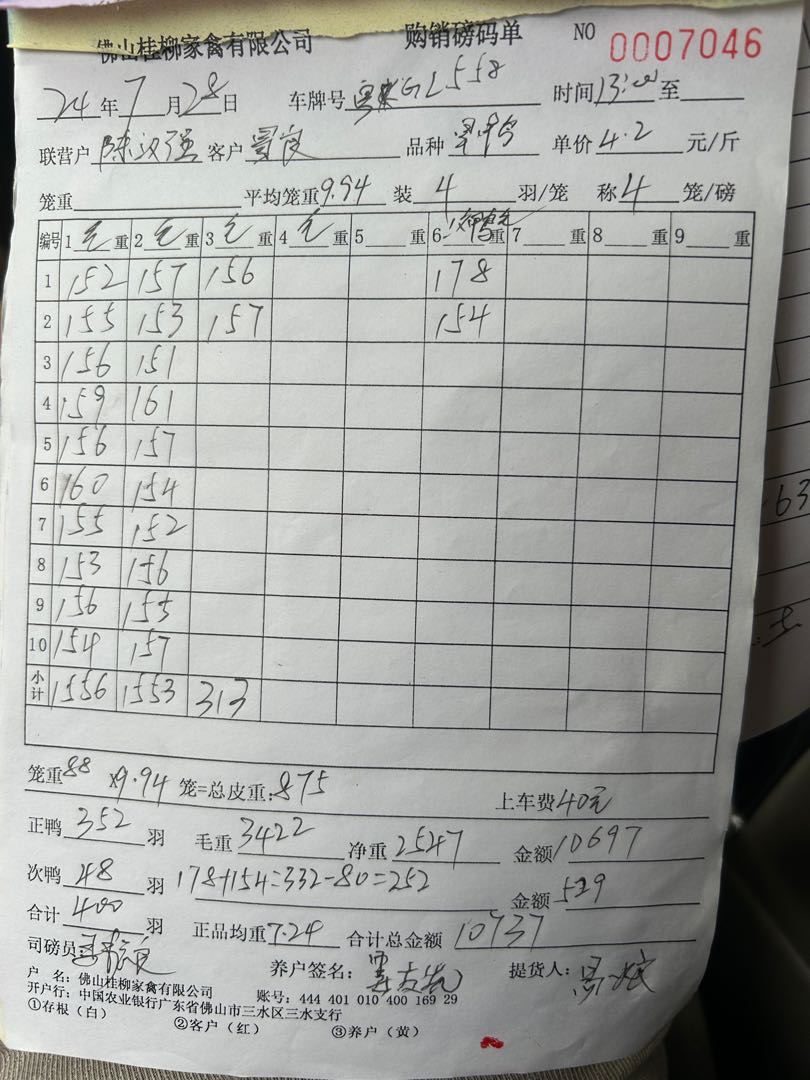 佛山桂柳家禽有限公司 购销磅码单 NO 0007046
24年7月28日 车牌号 GL558 时间13:00至
联营户 陈汉强 客户 品种 单价4.2元/斤
笼重 平均笼重9.94 装4羽/笼 称4笼/磅
编号 1毛重 2毛重 3毛重 4毛重 5重 6重 7重 8重 9重
1 152 157 156 178
2 155 153 157 154
3 156 151
4 159 161
5 156 157
6 160 154
7 155 152
8 153 156
9 156 155
10 154 157
小计 1556 1553 313
笼重88×9.94笼=总皮重:875 上车费40元
正鸭352羽 毛重3422 净重2547 金额10697
次鸭48羽 178+154=332-80=252 金额529
合计400羽 正品均重7.24 合计总金额10737
司磅员: 养户签名: 提货人:
户 名:佛山桂柳家禽有限公司 账号:444 401 010 400 169 29
开户行:中国农业银行广东省佛山市三水区三水支行
①存根(白) ②客户(红) ③养户(黄)
63